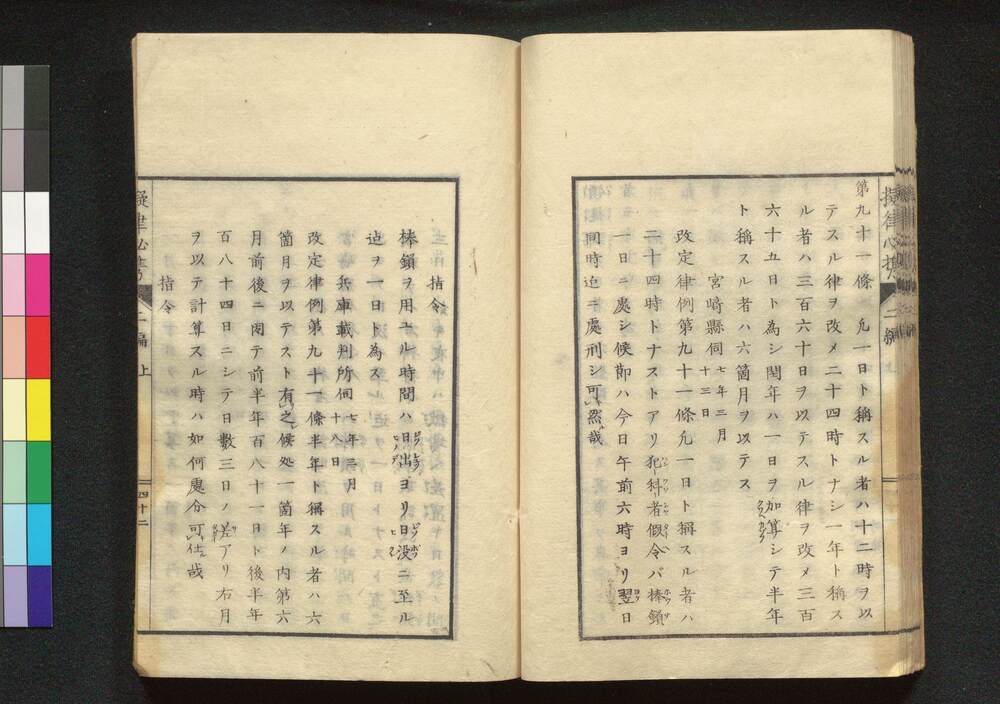 第九十一條 凢一日ト稱スル者ハ十二時ヲ以
テスル律ヲ改メ二十四時トナシ一年ト稱ス
ル者ハ三百六十日ヲ以テスル律ヲ改メ三百
六十五日ト為シ閏年ハ一日ヲ加算シテ半年
ト稱スル者ハ六箇月ヲ以テス
宮﨑縣伺 七年三月十三日
改定律例第九十一條凢一日ト稱スル者ハ
二十四時トナストアリ犯科者假令バ棒鎖
一日ニ處シ候節ハ今日午前六時ヨリ翌日
同時迄ニ處刑シ可然哉
二編
指令
棒鎖ヲ用ユル時間ハ日出ヨリ日没ニ至ル
迄ヲ一日ト為ス
兵庫裁判所伺 七年三月十八日
改定律例第九十一條半年ト稱スル者ハ六
箇月ヲ以テスト有之候処一箇年ノ内第六
月前後ニ閲テ前半年百八十一日ト後半年
百八十四日ニシテ日數三日ノ差アリ右月
ヲ以テ計算スル時ハ如何處分可仕哉
指令
上
四十二